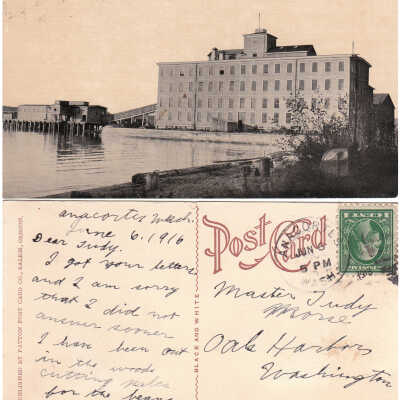 anacortes Wash.
June 6, 1916
Dear Trudy.
I got your letters
and I am sorry
that I did not
answer sooner
I have been out
in the woods
cutting poles
for the beans
PUBLISHED BY PATTON POST CARD CO., SALEM, OREGON.
BLACK AND WHITE
Post Card
ANACOR
JUN 6
5 PM
WASH.
Master Trudy
Morse
Oak Harbor
Washington